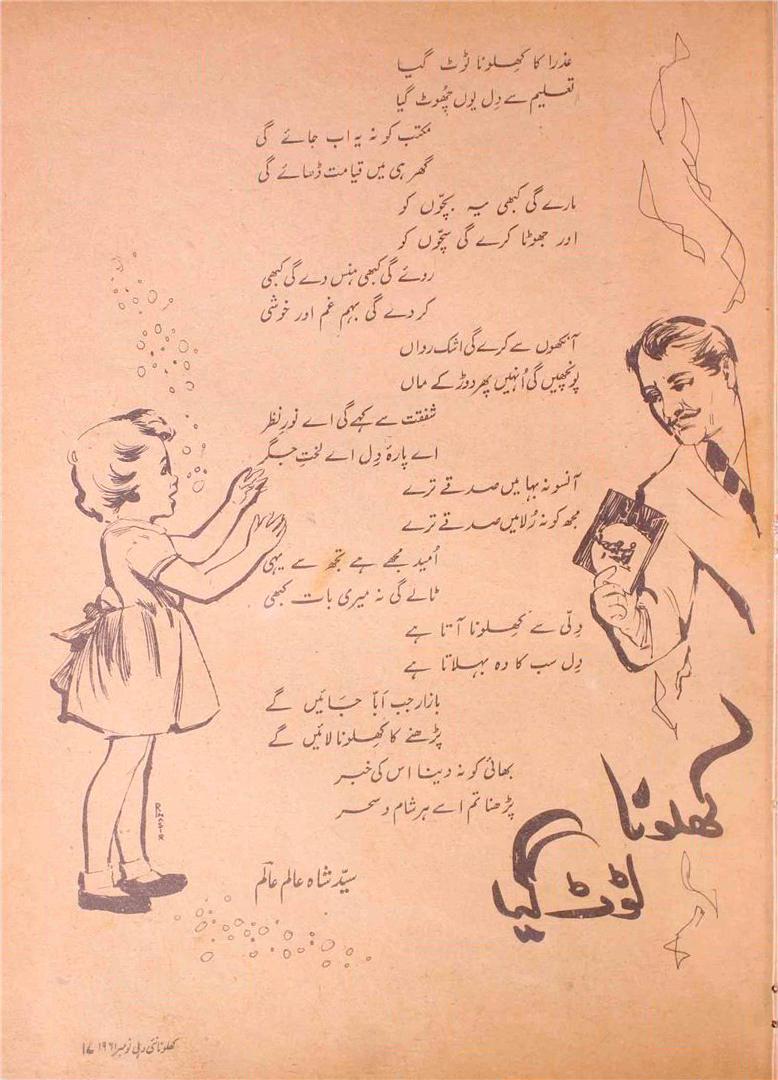 عذرا کا کھلونا ٹوٹ گیا
تعلیم سے دِل یوں چھُوٹ گیا
مکتب کو نہ یہ اب جائے گی
گھر ہی میں قیامت ڈھائے گی
مارے گی کبھی یہ بچّوں کو
اور جھوٹا کرے گی سچّوں کو
روئے گی کبھی ہنس دے گی کبھی
کر دے گی بہم غم اور خوشی
آنکھوں سے کرے گی اشک رواں
پونچھیں گی اُنہیں پھر دوڑ کے ماں
شفقت سے کہے گی اے نورِ نظر
اے پارۂ دِل اے لختِ جگر
آنسو نہ بہا میں صدقے ترے
مجھ کو نہ رُلا میں صدقے ترے
اُمید مجھے ہے تجھ سے یہی
ٹالے گی نہ میری بات کبھی
دِلّی سے کھلونا آتا ہے
دِل سب کا وہ بہلاتا ہے
بازار جب اَبّا جَائیں گے
پڑھنے کا کھلونا لائیں گے
بھائی کو نہ دینا اس کی خبر
پڑھنا تم اے ہر شام و سحر
سیّد شاہ عالم عالمؔ
کھلونا
ٹوٹ گیا
کھلونا
P. NASIR
کھلونا نئی دہلی نومبر ۱۹۶۱ ۱۷